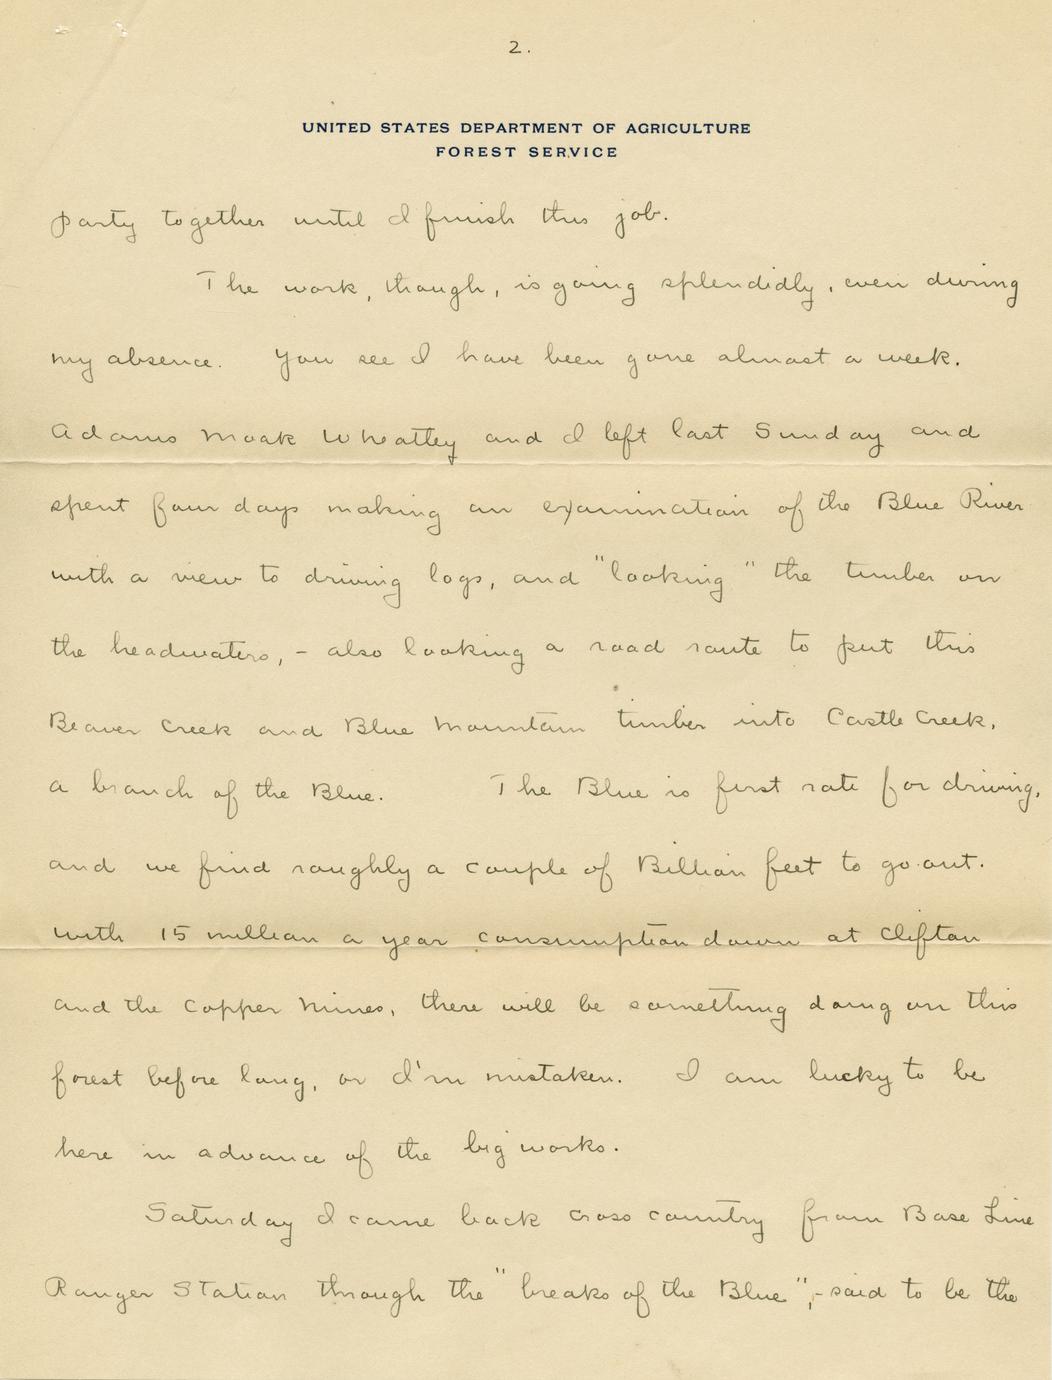 2.
UNITED STATES DEPARTMENT OF AGRICULTURE
FOREST SERVICE
party together until I finish this job.
The work, though, is going splendidly, even during
my absence. You see I have been gone almost a week.
Adams Moak Wheatley and I left last Sunday and
spent four days making an examination of the Blue River
with a view to driving logs, and "looking" the timber on
the headwaters, - also looking a road route to put this
Beaver Creek and Blue Mountain timber into Castle Creek,
a branch of the Blue. The Blue is first rate for driving,
and we find roughly a couple of Billion feet to go out.
with 15 million a year consumption down at Clifton
and the Copper Mines, there will be something doing on this
forest before long, or I'm mistaken. I am lucky to be
here in advance of the big works.
Saturday I came back cross country from Base Line
Ranger Station through the "breaks of the Blue", - said to be the